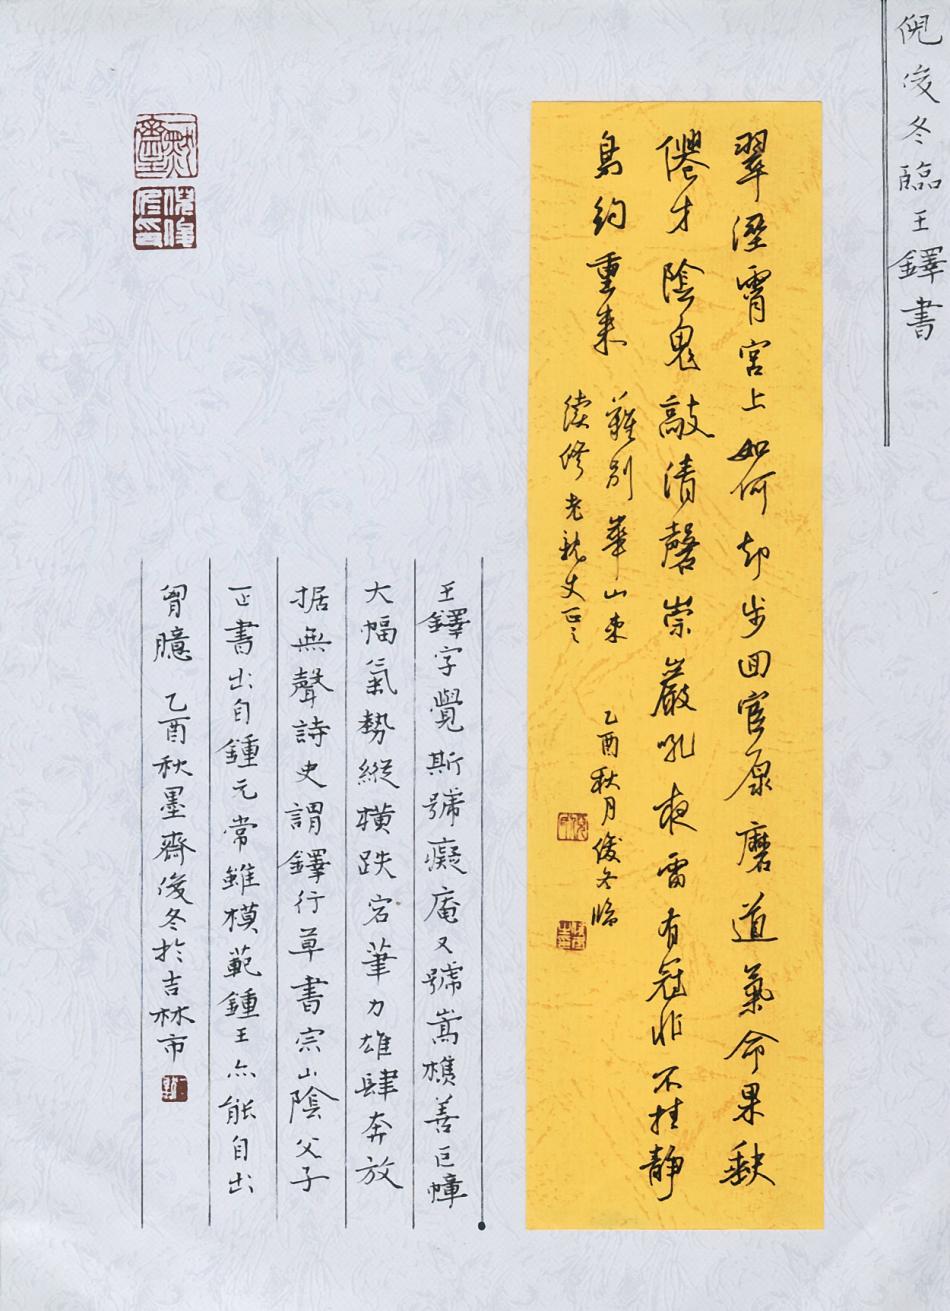 倪俊冬臨王鐸書
翠溼霄宮上如何却步回官原磨道氣命果缺
僊才陰鬼敲清磬崇嚴吼夜雷有冠非不挂靜
島約重來
難別華山東
續修老親丈正之
乙酉秋月俊冬臨
王鐸字覺斯號癡庵又號嵩樵善巨幛
大幅氣勢縱橫跌宕筆力雄肆奔放
据無聲詩史謂鐸行草書宗山陰父子
正書出自鍾元常雖模範鍾王亦能自出
胷臆 乙酉秋墨齋俊冬於吉林市